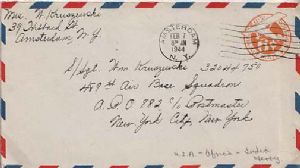 Wm. N. Kruszewski
39 Forbes St
Amsterdam N.Y.
AMSTERDAM
FEB 7
1944
N.Y.
S/Sgt. Wm Kruszewski 32044750
489th Air Base Squadron
A.P.O. 882 c/o Postmaster
New York City, New York
U.S.A. - Africa - India